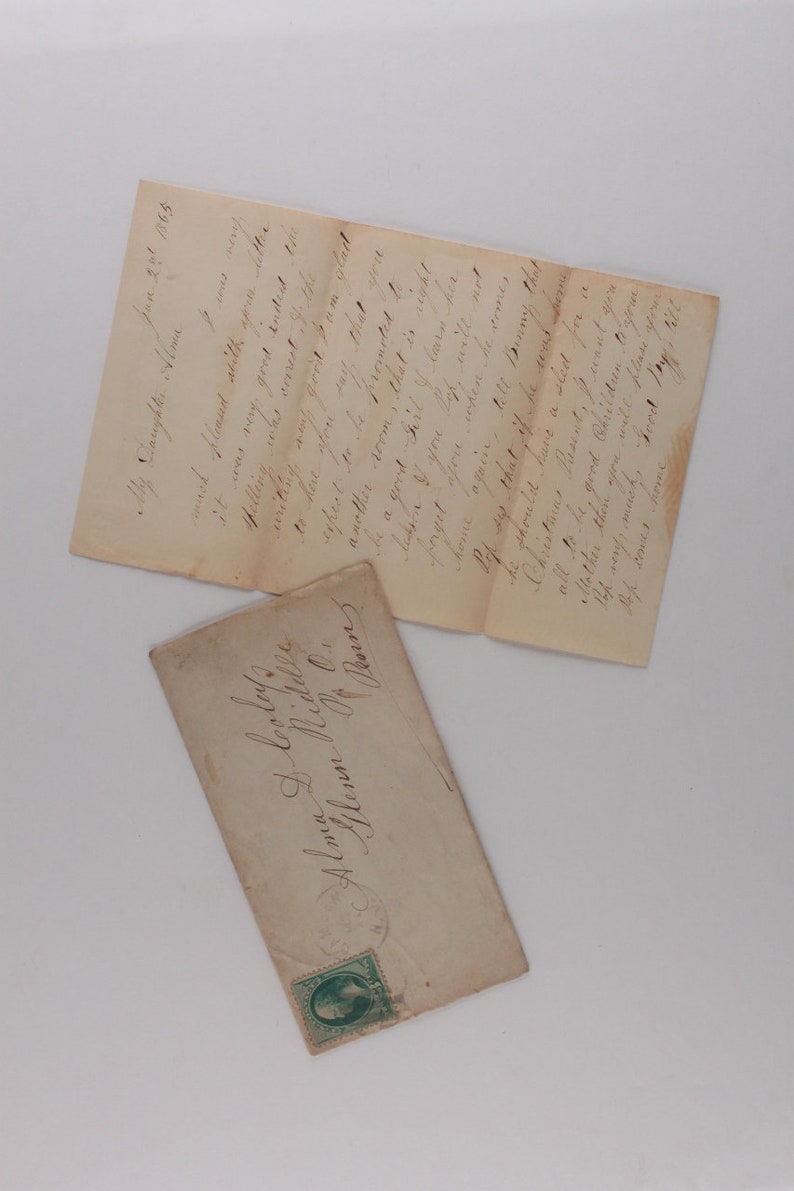 Jan 2nd 1865
My Daughter Alma
I was very
much pleased with your letter
it was very good indeed the
spelling was correct & the
writing very good I am glad
to here you say that you
expect to be promoted to
another room, that is right
be a good Girl & learn her
lesson & you Pop will not
forget you when he comes
home again, tell Benny that
Pop sys that if he was home
he should have a sled for a
Christmas Present, I want you
all to be good Children to your
Mother then you will please your
Pop very much, Good By till
Pop comes home
Alma D Coley
Glenn Riddle
P. O.
Penn